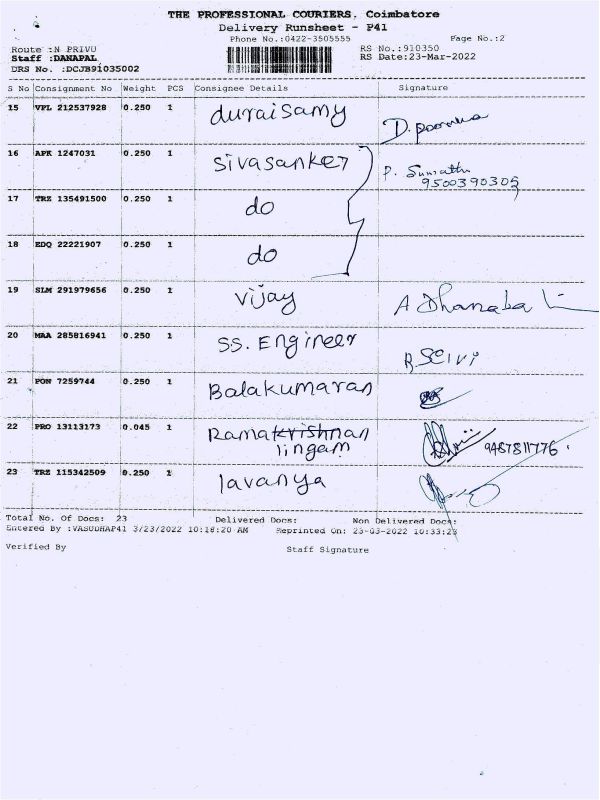 THE PROFESSIONAL COURIERS, Coimbatore
Delivery Runsheet - P41
Phone No.:0422-3505555 Page No.:2
Route :N PRIVU RS No.:910350
Staff :DANAPAL RS Date:23-Mar-2022
DRS No. :DCJB91035002
S No Consignment No Weight PCS Consignee Details Signature
15 VPL 212537928 0.250 1 duraisamy D.
16 APK 1247031 0.250 1 Sivasanker P.
9500390305
17 TRZ 135491500 0.250 1 do
18 EDQ 22221907 0.250 1 do
19 SLM 291979656 0.250 1 vijay A Dhanaba
20 MAA 285816941 0.250 1 S.S. Engineer R.Selvi
21 PON 7259744 0.250 1 Balakumaran
22 PRO 13113173 0.045 1 Ramakrishnan 9487811776
lingam
23 TRZ 115342509 0.250 1 lavanya
Total No. Of Docs: 23 Delivered Docs: Non Delivered Docs:
Entered By :VASUDHAP41 3/23/2022 10:18:20 AM Reprinted On: 23-03-2022 10:33:23
Verified By Staff Signature